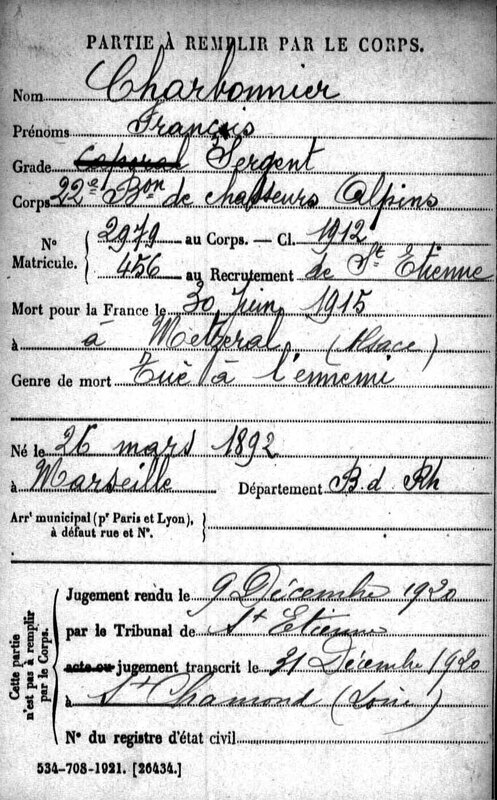 PARTIE À REMPLIR PAR LE CORPS.
Nom Charbonnier
Prénoms François
Grade Caporal Sergent
Corps 22e Bon de chasseurs Alpins
N° Matricule. { 2979 au Corps. — Cl. 1912
456 au Recrutement de St Etienne
Mort pour la France le 30 Juin 1915
à à Metzeral (Alsace)
Genre de mort Tué à l'ennemi
Né le 26 mars 1892
à Marseille Département B. d. Rh
Arrt municipal (pr Paris et Lyon), à défaut rue et N°. }
Cette partie n'est pas à remplir par le Corps.
Jugement rendu le 9 Décembre 1920
par le Tribunal de St Etienne
acte ou jugement transcrit le 31 Décembre 1920
à St Chamond (Loire)
N° du registre d'état civil
534-708-1921. [26434.]